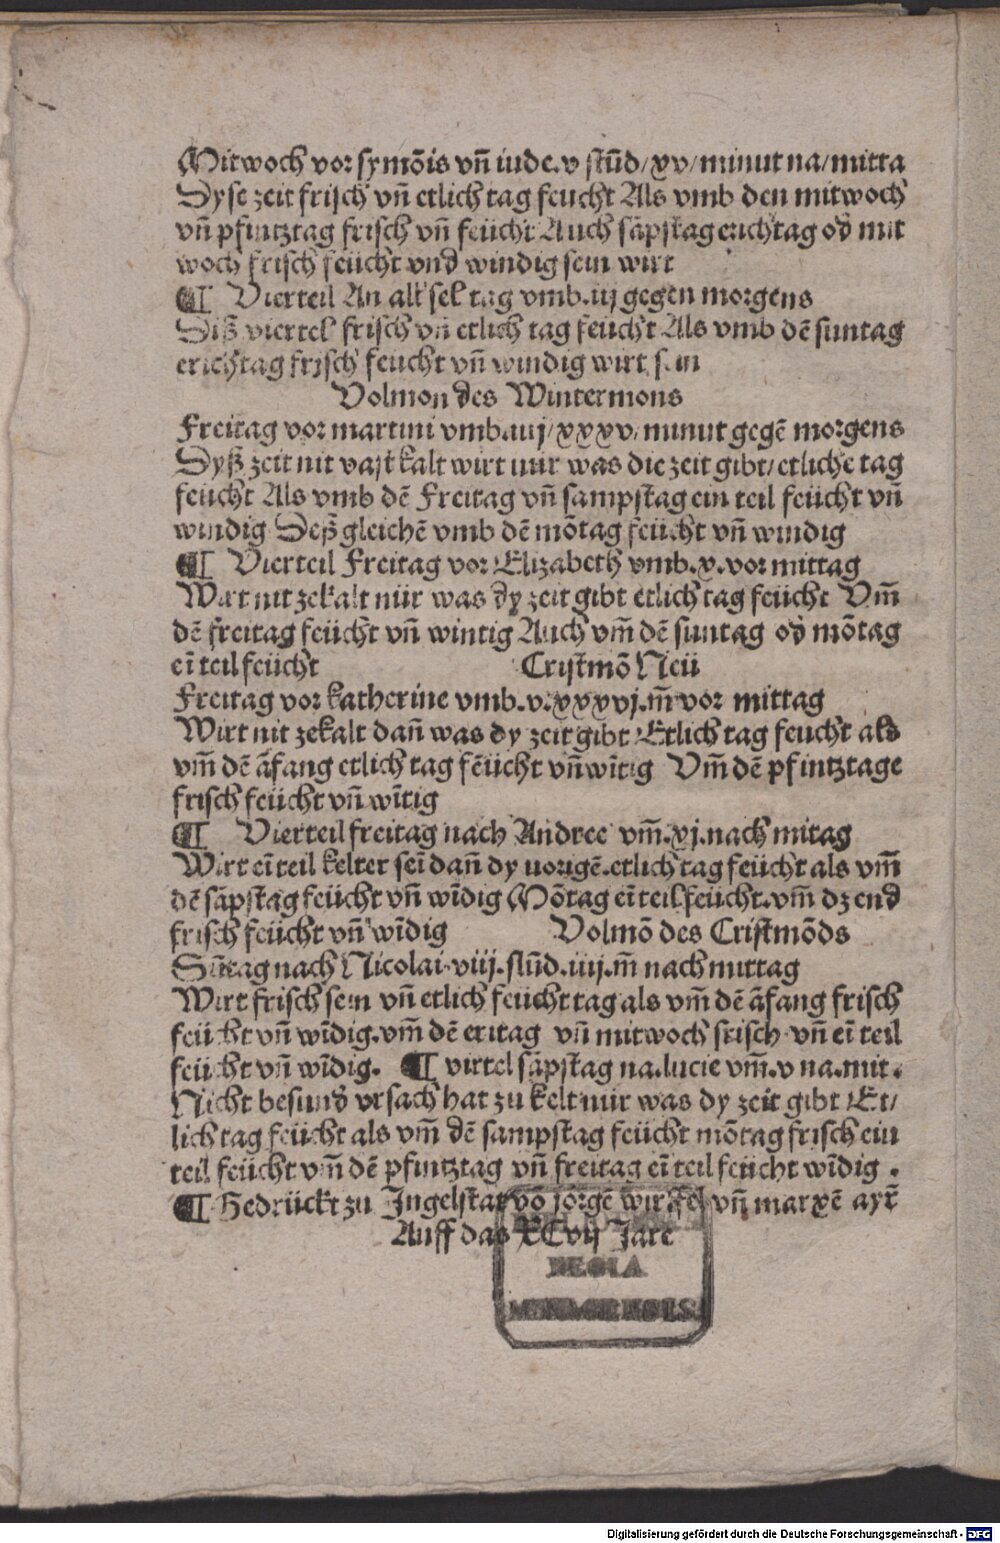 Mitwoch vor symõis vñ iude.v stũd/xv/minut na/mitta
Dyse zeit frisch vñ etlich tag feucht Als vmb den mitwoch
vñ pfintztag frisch vñ feücht Auch sãpstag erichtag od mit
woch frisch feücht vnd windig sein wirt
¶ Vierteil An all sel tag vmb.iij gegen morgens
Diß viertel frisch vñ etlich tag feucht Als vmb dẽ suntag
erichtag frisch feucht vñ windig wirt sein
Volmon des Wintermons
Freitag vor martini vmb.iiij/xxxv/minut gegẽ morgens
Dyß zeit nit vast kalt wirt nur was die zeit gibt/etliche tag
feücht Als vmb dẽ Freitag vñ sampstag ein teil feücht vñ
windig Deßgleichẽ vmb dẽ mõtag feücht vñ windig
¶ Vierteil Freitag vor Elizabeth vmb.v.vor mittag
Wirt nit zekalt nür was dy zeit gibt etlich tag feücht Vm̃
dẽ freitag feücht vñ wintig Auch vm̃ dẽ suntag od mõtag
eĩ teil feücht Cristmõ Neü
Freitag vor katherine vmb.v.xxxvj.m̃.vor mittag
Wirt nit zekalt dañ was dy zeit gibt Etlich tag feucht als
vm̃ dẽ ãfang etlich tag feücht vñ wĩtig Vm̃ dẽ pfintztage
frisch feücht vñ wĩtig
¶ Vierteil freitag nach Andree vm̃.xj.nach mitag
Wirt eĩ teil kelter seĩ dañ dy vorigẽ.etlich tag feücht als vm̃
dẽ sãpstag feücht vñ wĩdig Mõtag eĩ teil feücht.vm̃ dz end
frisch feücht vñ wĩdig Volmõ des Cristmõds
Sũtag nach Nicolai.viij.stũd.iiij.m̃ nach mittag
Wirt frisch sein vñ etlich feücht tag als vm̃ dẽ ãfang frisch
feücht vñ wĩdig.vm̃ dẽ eritag vñ mitwoch frisch vñ eĩ teil
feücht vñ wĩdig. ¶ virtel sãpstag na.lucie vm̃.v na.mit.
Nicht besund vrsach hat zu kelt nür was dy zeit gibt Et/
lich tag feücht als vm̃ dẽ sampstag feücht mõtag frisch ein
teil feücht vm̃ dẽ pfintztag vñ freitag eĩ teil feücht wĩdig.
¶ Gedrückt zu Ingelstat võ jõrgẽ wirffel vñ marxẽ ayr̃
Auff das XCvij Jare
REGIA
MONACENSIS
Digitalisierung gefördert durch die Deutsche Forschungsgemeinschaft - DFG